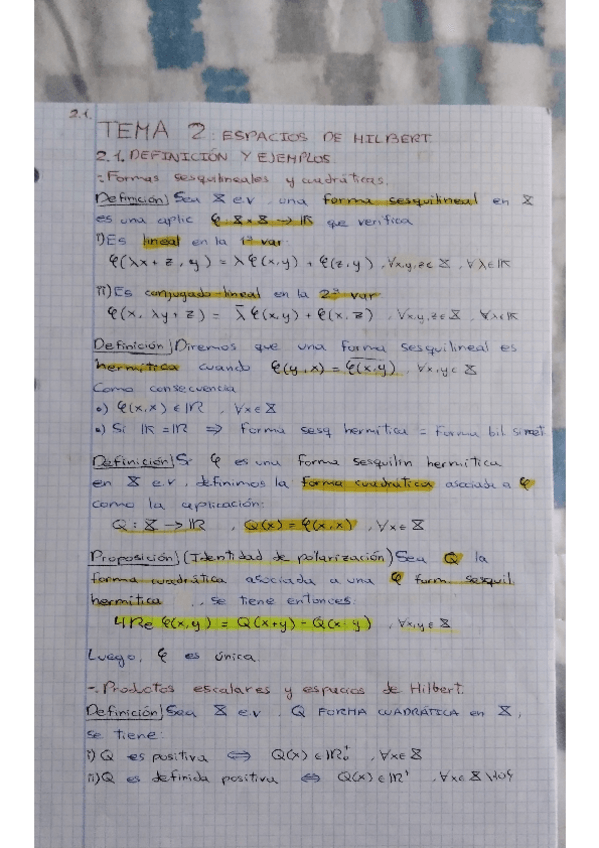 2.1.
TEMA 2: ESPACIOS DE HILBERT.
2.1. DEFINICIÓN Y EJEMPLOS.
-. Formas sesquilineales y cuadráticas.
Definición) Sea X e.v, una forma sesquilineal en X
es una aplic φ: X × X → K que verifica
i) Es lineal en la 1ª var.
φ(λx + z, y) = λ φ(x,y) + φ(z,y), ∀x,y,z ∈ X, ∀λ ∈ K
ii) Es conjugado-lineal en la 2ª var
φ(x, λy + z) = λ̄ φ(x,y) + φ(x,z), ∀x,y,z ∈ X, ∀λ ∈ K
Definición) Diremos que una forma sesquilineal es
hermítica cuando φ(y,x) = \overline{φ(x,y)}, ∀x,y ∈ X
Como consecuencia
•) φ(x,x) ∈ ℝ, ∀x ∈ X
•) Si K = ℝ ⇒ Forma sesq hermítica = Forma bil simét.
Definición) Si φ es una forma sesquilin hermítica
en X e.v, definimos la forma cuadrática asociada a φ
como la aplicación:
Q: X → ℝ, Q(x) = φ(x,x), ∀x ∈ X
Proposición) (Identidad de polarización) Sea Q la
forma cuadrática asociada a una φ form sesquil
hermítica, se tiene entonces:
4Re φ(x,y) = Q(x+y) - Q(x-y), ∀x,y ∈ X
Luego, φ es única.
-. Productos escalares y espacios de Hilbert.
Definición) Sea X e.v, Q FORMA CUADRÁTICA en X,
se tiene:
i) Q es positiva ⇔ Q(x) ∈ ℝ₀⁺, ∀x ∈ X
ii) Q es definida positiva ⇔ Q(x) ∈ ℝ⁺, ∀x ∈ X\{0}